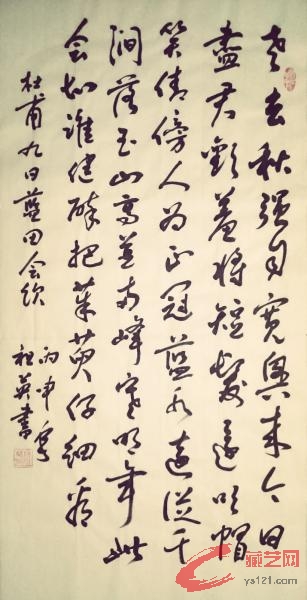 老去秋强自寬興来今日
盡君歡羞将短髮還吹帽
笑倩傍人为正冠藍水遠從千
涧落玉山高並两峰寒明年此
会知谁健醉把茱萸仔细看
杜甫九日藍田会饮
丙申
祖英書
藏艺网
ys121.com